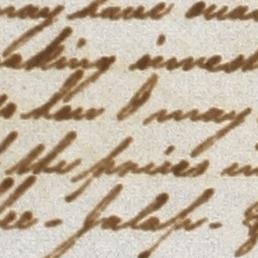 may have
making invest
to how I may
the prices in
- Jalap -